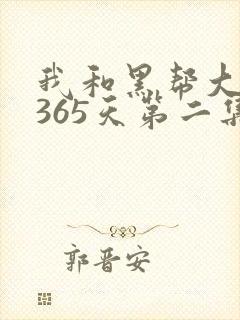 我和黑帮大
365天第二集
郭晋安